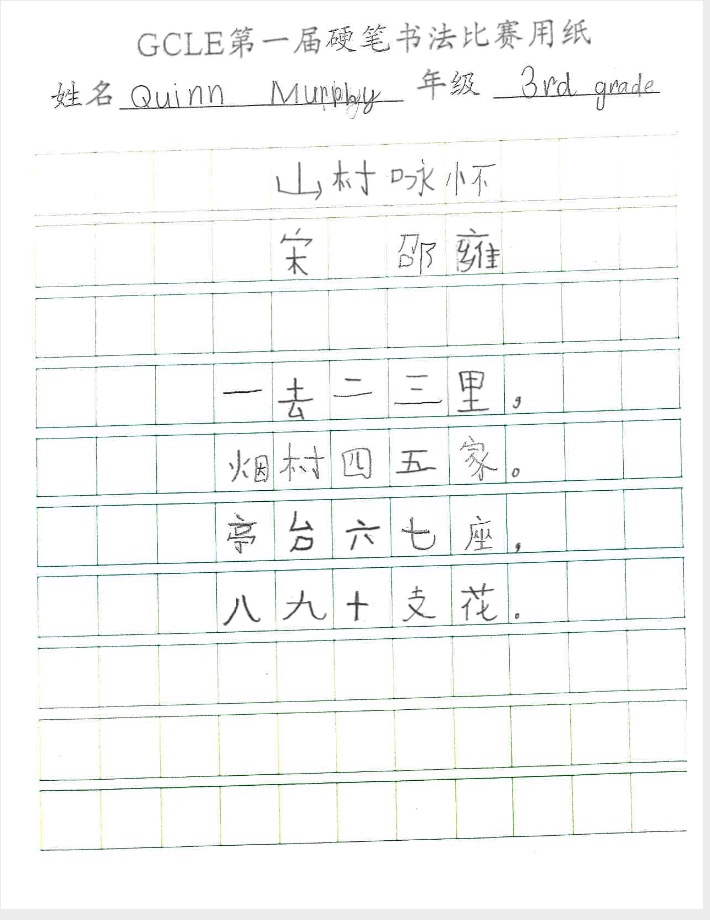 GCLE第一届硬笔书法比赛用纸
姓名 Quinn Murphy 年级 3rd grade
山村咏怀
宋 邵雍
一去二三里，
烟村四五家。
亭台六七座，
八九十支花。